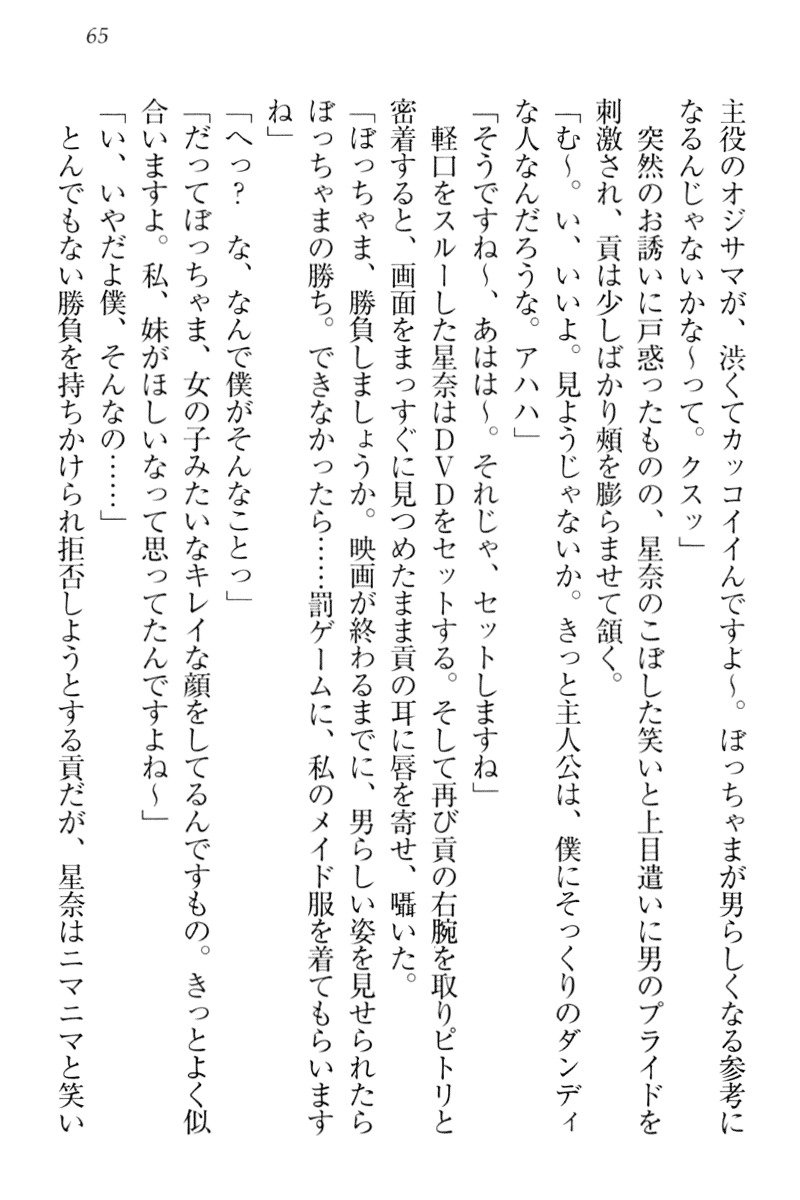 65
主役のオジサマが、渋くてカッコイイんですよ〜。ぼっちゃまが男らしくなる参考に
なるんじゃないかな〜って。クスッ」
　突然のお誘いに戸惑ったものの、星奈のこぼした笑いと上目遣いに男のプライドを
刺激され、貢は少しばかり頰を膨らませて頷く。
「む〜。い、いいよ。見ようじゃないか。きっと主人公は、僕にそっくりのダンディ
な人なんだろうな。アハハ」
「そうですね〜、あはは〜。それじゃ、セットしますね」
　軽口をスルーした星奈はDVDをセットする。そして再び貢の右腕を取りピトリと
密着すると、画面をまっすぐに見つめたまま貢の耳に唇を寄せ、囁いた。
「ぼっちゃま、勝負しましょうか。映画が終わるまでに、男らしい姿を見せられたら
ぼっちゃまの勝ち。できなかったら……罰ゲームに、私のメイド服を着てもらいます
ね」
「へっ？　な、なんで僕がそんなことっ」
「だってぼっちゃま、女の子みたいなキレイな顔をしてるんですもの。きっとよく似
合いますよ。私、妹がほしいなって思ってたんですよね〜」
「い、いやだよ僕、そんなの……」
　とんでもない勝負を持ちかけられ拒否しようとする貢だが、星奈はニマニマと笑い